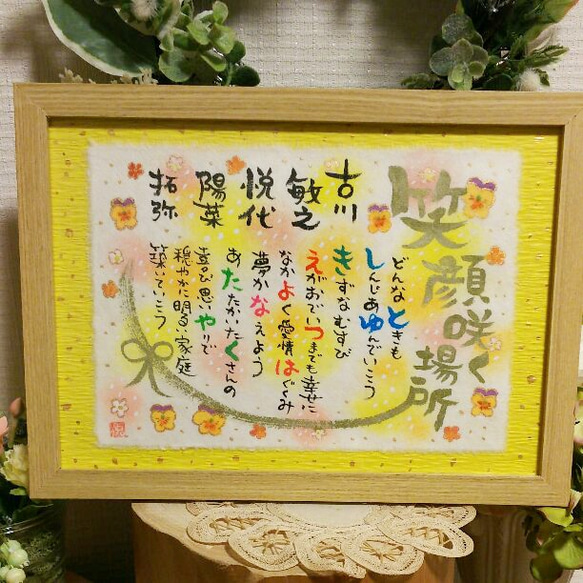 笑顔咲く場所
どんなときも
しんじあゆんでいこう
きずなむすび
えがおでいつまでも幸せに
なかよく愛情はぐくみ
夢かなえよう
あたたかいたくさんの
喜び思いやりで
穏やかに明るい家庭
築いていこう
古川
敏之
悦代
陽菜
拓弥